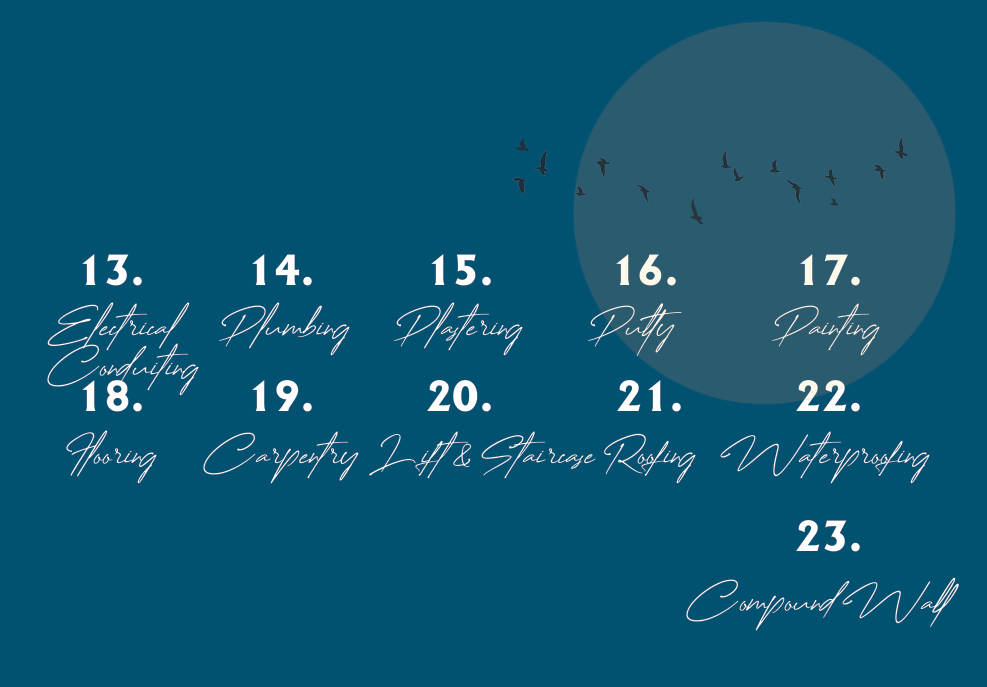 13. 14. 15. 16. 17.
Electrical Plumbing Plastering Putty Painting
Conduiting
18. 19. 20. 21. 22.
Flooring Carpentry Lift & Staircase Roofing Waterproofing
23.
Compound Wall